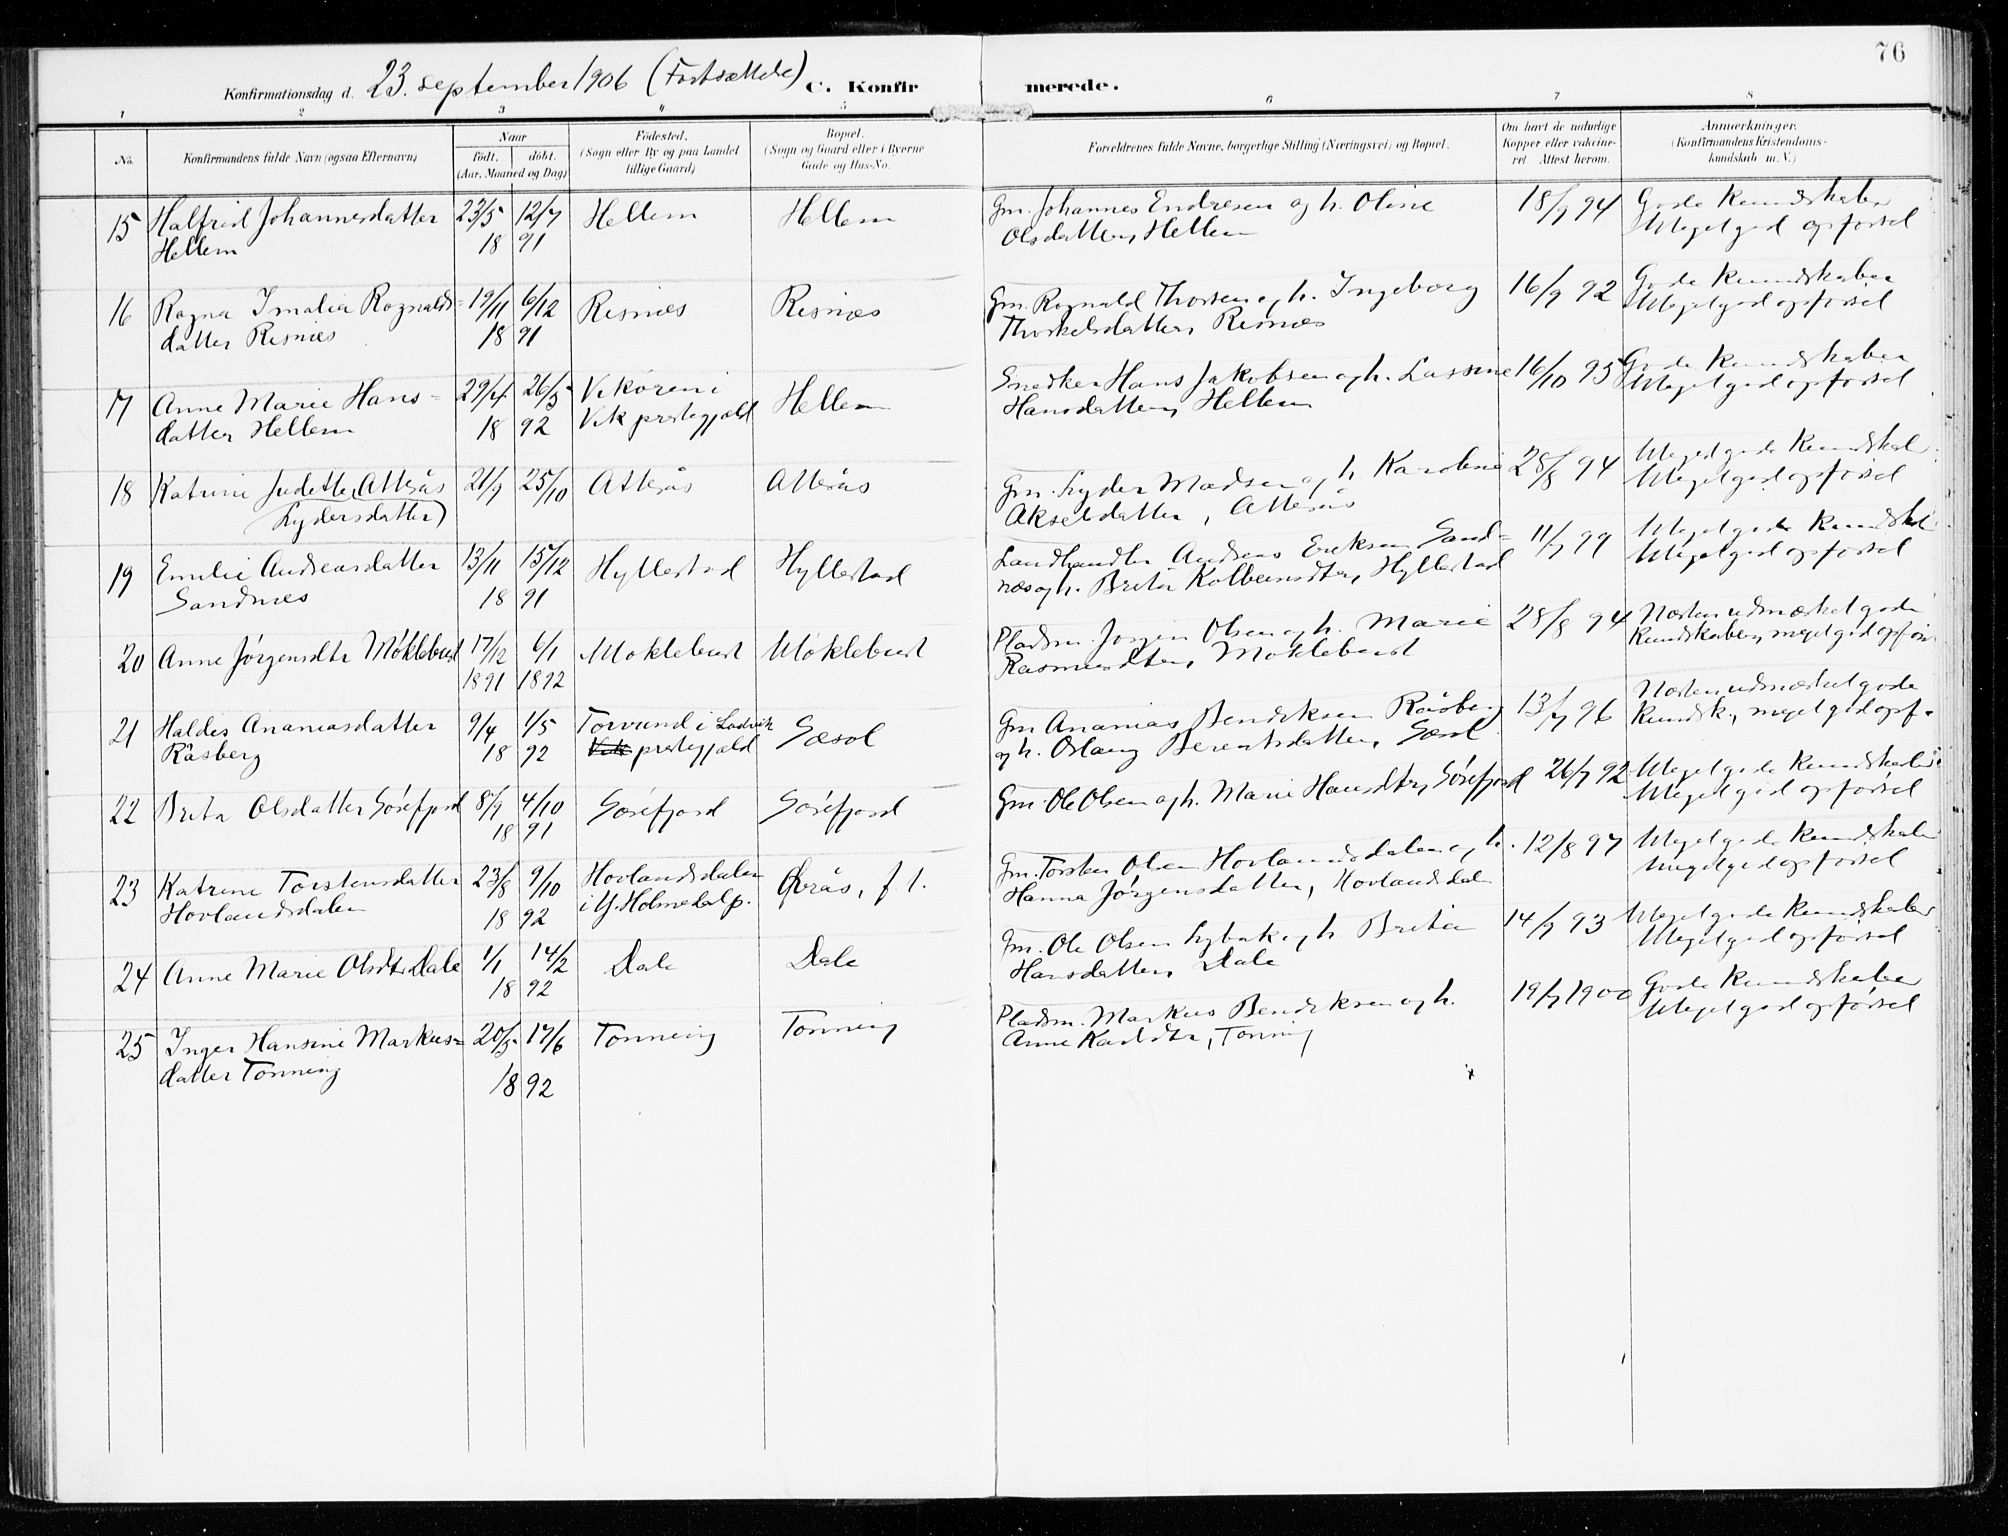 76
Konfirmationsdag d. 23. september 1906 (Fortsættelse) C. Konfirmerede.
1 2 3 4 5 6 7 8
No.
Konfirmandens fulde Navn (ogsaa Efternavn)
Naar
födt. döbt.
(Aar, Maaned og Dag)
Födested.
(Sogn eller By og paa Landet
tillige Gaard)
Bopæl.
(Sogn og Gaard eller i Byerne
Gade og Hus-No.
Forældrenes fulde Navne, borgerlige Stilling (Næringsvei) og Bopæl.
Om havt de naturlige
Kopper eller vakcine-
ret Attest herom.
Anmærkninger.
(Konfirmandens Kristendoms-
kundskab m. V.)
15 Halfrid Johannesdatter 23/5 12/7 Hellem Hellem Gm. Johannes Endresen og h. Oline 18/9 94 Gode kundskaber
Hellem 18 91 Olsdatter, Hellem Meget god opførsel
16 Ragna Imalia Rognalds= 19/11 6/12 Risnæs Risnæs Gm. Rognald Thorsen og h. Ingeborg 16/9 92 Gode kundskaber
datter Risnæs 18 91 Thorkelsdatter, Risnæs Meget god opførsel
17 Anne Marie Hans= 29/4 26/5 Vikøren i Hellem Snedker Hans Jakobsen og h. Lassine 16/10 95 Gode kundskaber
datter Hellem 18 92 Vik prestegjæld Hansdatter, Hellem Meget god opførsel
18 Katrine Judette Atterås 21/9 25/10 Atterås Atterås Gm. Lyder Madsen og h. Karoline 28/8 94 Meget gode kundskab.
(Lydersdatter) Akseldatter, Atterås Meget god opførsel
19 Emilie Andreasdatter 13/11 15/12 Hyllestad Hyllestad Landhandler Andreas Eriksen Sand= 11/7 99 Meget gode kundskab
Sandnæs 18 91 næs og h. Brita Kolbeinsdtr, Hyllestad Meget god opførsel
20 Anne Jørgensdtr Møklebust 17/12 6/1 Møklebust Møklebust Pladsm. Jørgen Olsen og h. Marie 28/8 94 Næsten udmærket gode
1891 1892 Rasmusdtr, Møklebust kundskaber, meget god opfør
21 Haldis Ananiasdatter 9/4 1/5 Torvund i Ladvik Sæsol Gm Ananias Bendiksen Råsberg 13/7 96 Næsten udmærket gode
Råsberg 18 92 Vik prestegjæld og h. Oslaug Berentsdatter, Sæsol kundsk., meget god opf.
22 Brita Olsdatter Sörefjord 8/9 4/10 Sörefjord Sörefjord Gm. Ole Olsen og h. Marie Hansdtr, Sörefjord 26/7 92 Meget gode kundskaber
18 91 Meget god opførsel
23 Katrine Torstensdatter 23/8 9/10 Hovlandsdalen Øvrås, f.t. Gm. Torsten Olsen Hovlandsdalen og h. 12/8 97 Meget gode kundskaber
Hovlandsdalen 18 92 i Y. Holmedal p. Hanna Jørgensdatter, Hovlandsdalen Meget god opførsel
24 Anne Marie Olsdtr Dale 1/1 14/2 Dale Dale Gm. Ole Olsen Lybæk og h. Brita 14/9 93 Meget gode kundskaber
18 92 Hansdatter, Dale Meget god opførsel
25 Inger Hansine Markus= 20/5 17/6 Tonning Tonning Pladsm. Markus Bendiksen og h. 19/7 1900 Gode kundskaber
datter Tonning 18 92 Anne Karldtr, Tonning Meget god opførsel